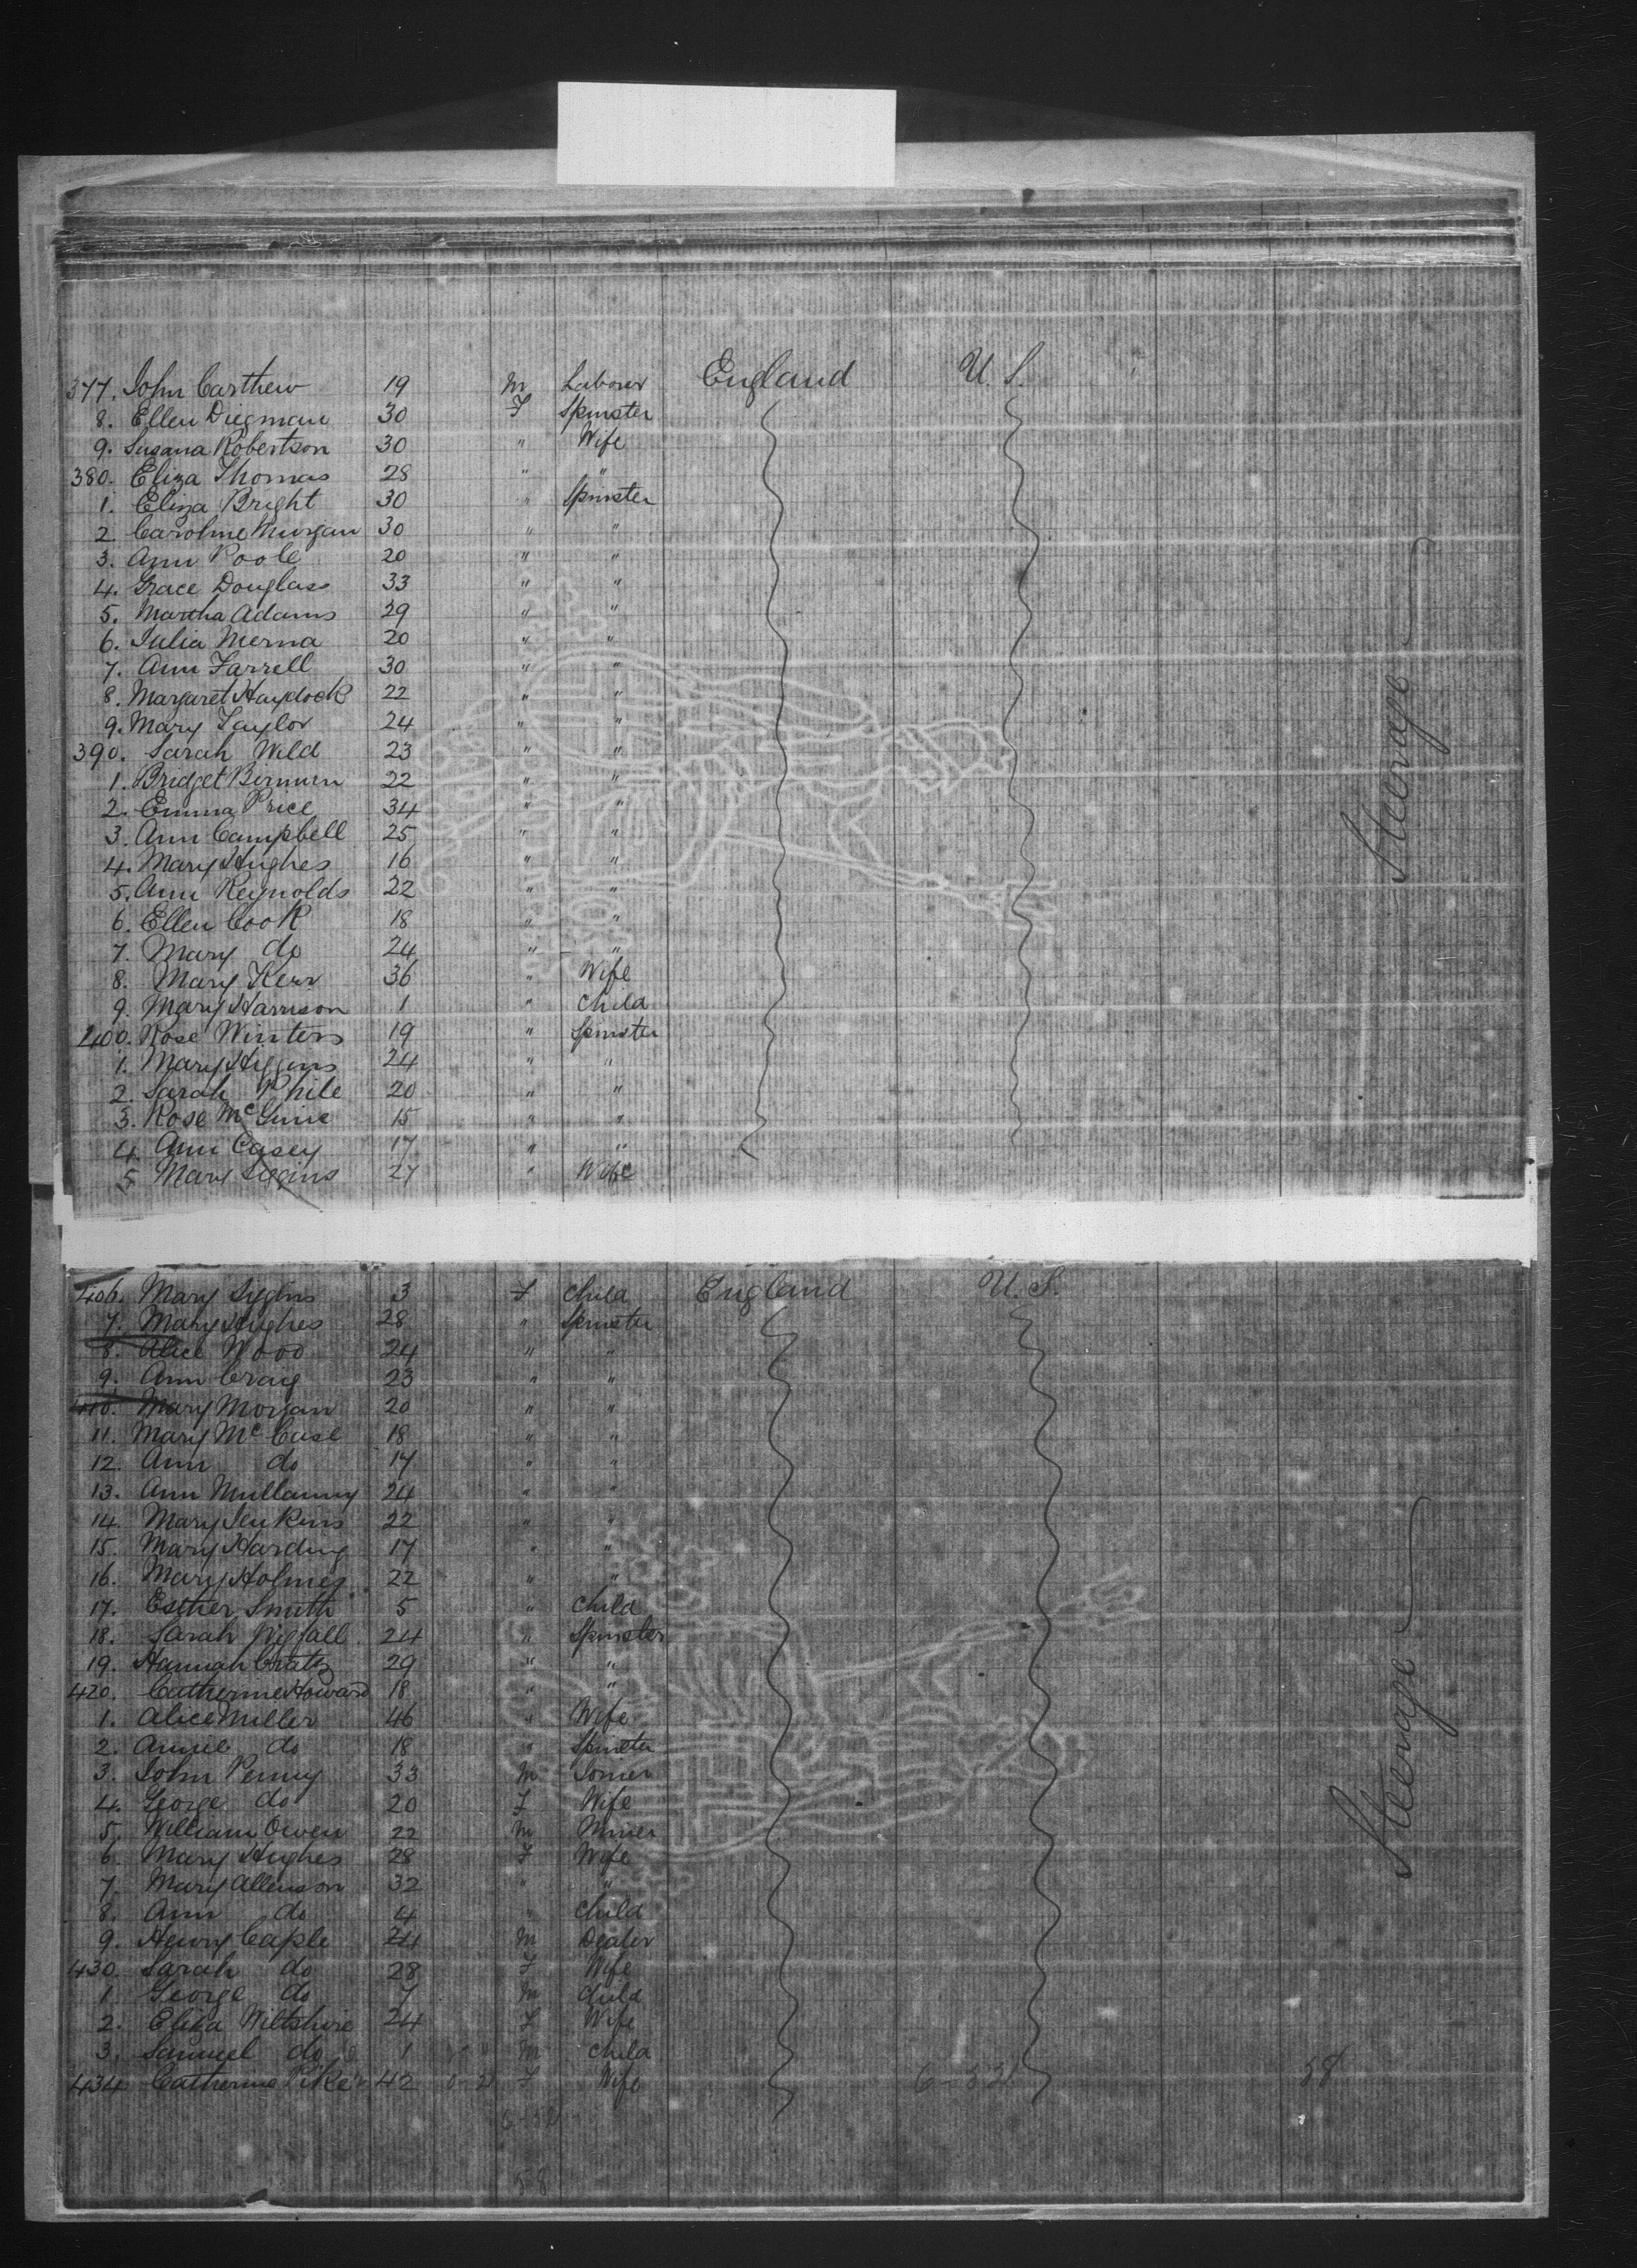 377. John Carthew 19 M Laborer England U.S.
8. Ellen Diegman 30 F Spinster
9. Susana Robertson 30 " Wife
380. Eliza Thomas 28 " "
1. Eliza Bright 30 " Spinster
2. Caroline Murgan 30 " "
3. Ann Poole 20 " "
4. Grace Douglass 33 " "
5. Martha Adams 29 " "
6. Julia Merna 20 " "
7. Ann Farrell 30 " "
8. Margaret Haydock 22 " "
9. Mary Taylor 24 " "
390. Sarah Wild 23 " "
1. Bridget 22 " "
2. Emma Price 34 " "
3. Ann Campbell 25 " "
4. Mary Hughes 16 " "
5. Ann Reynolds 22 " "
6. Ellen Cook 18 " "
7. Mary do 24 " "
8. Mary Kerr 36 " Wife
9. Mary Harrison 1 " Child
400. Rose Winters 19 " Spinster
1. Mary Higgins 24 " "
2. Sarah Phile 20 " "
3. Rose McGuire 15 " "
4. Ann Casey 17 " "
5. Mary 27 " Wife
Steerage
406. Mary 3 F Child England U.S.
7. Mary Hughes 28 " Spinster
8. Alice Wood 24 " "
9. Ann Craig 23 " "
410. Mary Morgan 20 " "
11. Mary McCase 18 " "
12. Ann do 17 " "
13. Ann Mullanny 24 " "
14. Mary Jenkins 22 " "
15. Mary Harding 17 " "
16. Mary Holmes 22 " "
17. Esther Smith 5 " Child
18. Sarah Wigfall 24 " Spinster
19. Hannah 29 " "
420. Catherine Howard 18 " "
1. Alice Miller 46 " Wife
2. Annie do 18 " Spinster
3. John Penny 33 M
4. George do 20 F Wife
5. William Owen 22 M Miner
6. Mary Hughes 28 F Wife
7. Mary Allenson 32 " "
8. Ann do 4 " Child
9. Henry Caple 24 M Dealer
430. Sarah do 28 F Wife
1 George do 7 M Child
2. Eliza Wiltshire 24 F Wife
3. Samuel do 1 M Child
434 Catherine Pike 42 F Wife 58
58
Steerage